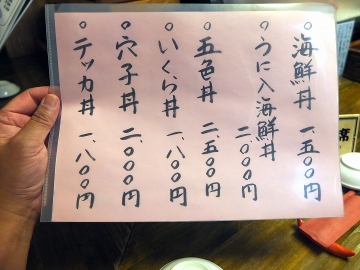 ○海鮮丼 一、五〇〇円
○うに入海鮮丼
二、〇〇〇円
○五色丼 二、五〇〇円
○いくら丼 一、八〇〇円
○穴子丼 二、〇〇〇円
○テッカ丼 一、八〇〇円
席